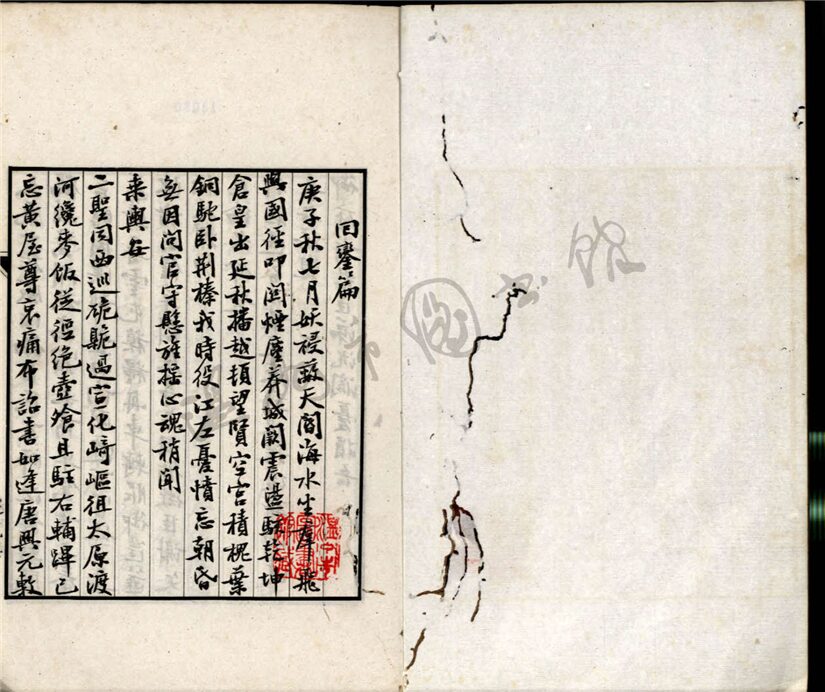 回鑾篇
庚子秋七月妖祲蔽天閽海水坐羣飛
與國徑叩関煙塵莽城闕震盪駭乾坤
倉皇出延秋播越頓望賢空宮積槐葉
銅駝卧荆榛我時役江左憂憤忘朝昏
無因問官守懸旌搖心魂稍聞
乘輿安
二聖同西巡過宣化崎嶇徂太原渡
河纔麥飯從徑絶壺飱且駐右輔蹕已
忘黃屋尊哀痛布詔書如逢唐興元敕